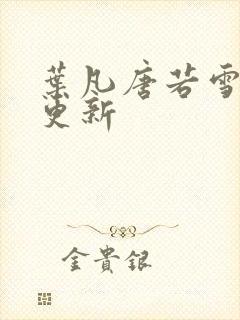 葉凡唐若雪
更新
金貴銀